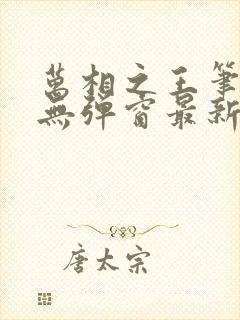 萬相之王筆
無彈窗最新
唐太宗